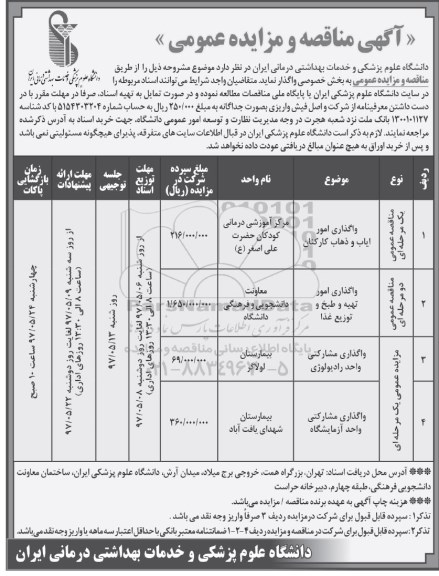 « آگهی مناقصه و مزایده عمومی »
دانشگاه علوم پزشکی و خدمات بهداشتی درمانی ایران در نظر دارد موضوع مشروحه ذیل را از طریق
مناقصه و مزایده عمومی به بخش خصوصی واگذار نماید. متقاضیان واجد شرایط می‌توانند اسناد مربوطه را
در سایت دانشگاه علوم پزشکی ایران یا پایگاه ملی مناقصات مطالعه نموده و در صورت تمایل به تهیه اسناد، صرفا در مهلت مقرر با در
دست داشتن معرفینامه از شرکت و اصل فیش واریزی بصورت جداگانه به مبلغ ۲۵۰/۰۰۰ ریال به حساب شماره ۵۱۵۴۳۰۳۲۰۴ با کد شناسه
۱۳۰۰۱۰۱۱۲۷ بانک ملت نزد شعبه هجرت در وجه مدیریت نظارت و توسعه امور عمومی دانشگاه، جهت خرید اسناد به آدرس ذکرشده
مراجعه نمایند. لازم به ذکر است دانشگاه علوم پزشکی ایران در قبال اطلاعات سایت های متفرقه، پذیرای هیچگونه مسئولیتی نمی باشد
و پس از خرید اوراق به هیچ عنوان مبالغ دریافتی عودت داده نخواهد شد.
ردیف
نوع
موضوع
نام واحد
مبلغ سپرده شرکت در مزایده (ریال)
مهلت توزیع اسناد
جلسه توجیهی
مهلت ارائه پیشنهادات
زمان بازگشایی پاکات
۱
مناقصه عمومی یک مرحله ای
واگذاری امور ایاب و ذهاب کارکنان
مرکز آموزشی درمانی کودکان حضرت علی اصغر (ع)
۲۱۶/۰۰۰/۰۰۰
۲
مناقصه عمومی دو مرحله ای
واگذاری امور تهیه و طبخ و توزیع غذا
معاونت دانشجویی و فرهنگی دانشگاه
۱/۶۵۰/۰۰۰/۰۰۰
۳
مزایده عمومی یک مرحله ای
واگذاری مشارکتی واحد رادیولوژی
بیمارستان لولاگر
۶۹/۰۰۰/۰۰۰
۴
واگذاری مشارکتی واحد آزمایشگاه
بیمارستان شهدای یافت آباد
۳۶۰/۰۰۰/۰۰۰
از روز شنبه ۹۷/۰۵/۰۶ لغایت روز دوشنبه ۹۷/۰۵/۰۸ (ساعت ۸ الی ۱۳:۳۰ روزهای اداری)
روز شنبه ۹۷/۰۵/۱۳
از روز سه شنبه ۹۷/۰۵/۰۹ لغایت روز دوشنبه ۹۷/۰۵/۲۲ (ساعت ۸ الی ۱۳:۳۰ روزهای اداری)
چهارشنبه ۹۷/۰۵/۲۴ ساعت ۱۰ صبح
پایگاه اطلاع رسانی مناقصه و مزایده
۰۲۱-۸۸۳۴۹۶۷۰-۵
*** آدرس محل دریافت اسناد: تهران، بزرگراه همت، خروجی برج میلاد، میدان آرش، دانشگاه علوم پزشکی ایران، ساختمان معاونت
دانشجویی فرهنگی، طبقه چهارم، دبیرخانه حراست
*** هزینه چاپ آگهی به عهده برنده مناقصه / مزایده می‌باشد.
تذکر۱: سپرده قابل قبول برای شرکت در مزایده ردیف ۳ صرفاً واریز وجه نقد می باشد.
تذکر۲: سپرده قابل قبول برای شرکت در مناقصه و مزایده ردیف ۴-۲-۱ ضمانتنامه معتبر بانکی با حداقل اعتبار سه ماهه یا واریز وجه نقد می باشد.
دانشگاه علوم پزشکی و خدمات بهداشتی درمانی ایران